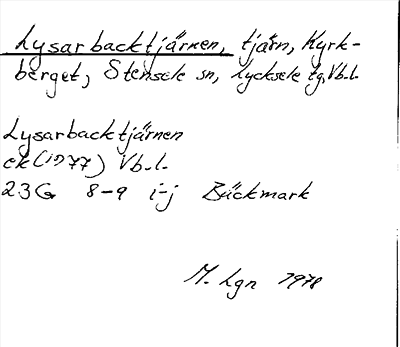 Lysarbacktjärnen, tjärn, Kyrk-
berget, Stensele sn, Lycksele tg, Vb.l.
Lysarbacktjärnen
ek (1977) Vb.l.
23G 8-9 i-j Bäckmark
M. Lgn 1978